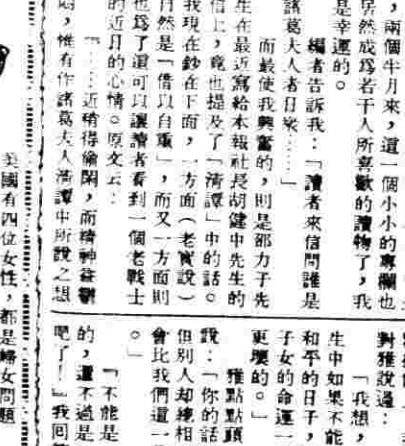 ，兩個半月來，這一個小小的專欄也
居然成爲若干人所喜歡的讀物了，我
是幸運的。
編者告訴我：「讀者來信問誰是
諸葛夫人者日衆……」
而最使我興奮的，則是邵力子先
生在最近寫給本報社長胡健中先生的
信上，竟也提及了「清譚」中的話。
我現在鈔在下面，一方面（老實說）
自然是「借以自重」，而又一方面則
也爲了還可以讓讀者看到一個老戰士
的近日的心情。原文云：
「……近稍得偸閑，而精神益鬱
悶，惟有作諸葛夫人清譚中所說之想
對雅說過：
「我想，
生中如果不能
和平的日子，
子女的命運一
更壞的。」
雅點點頭
說：「你的話
但別人却總相
會比我們這一
。」
「不能是
的，還不過是
吧了！」我回
美國有四位女性，都是婦女問題